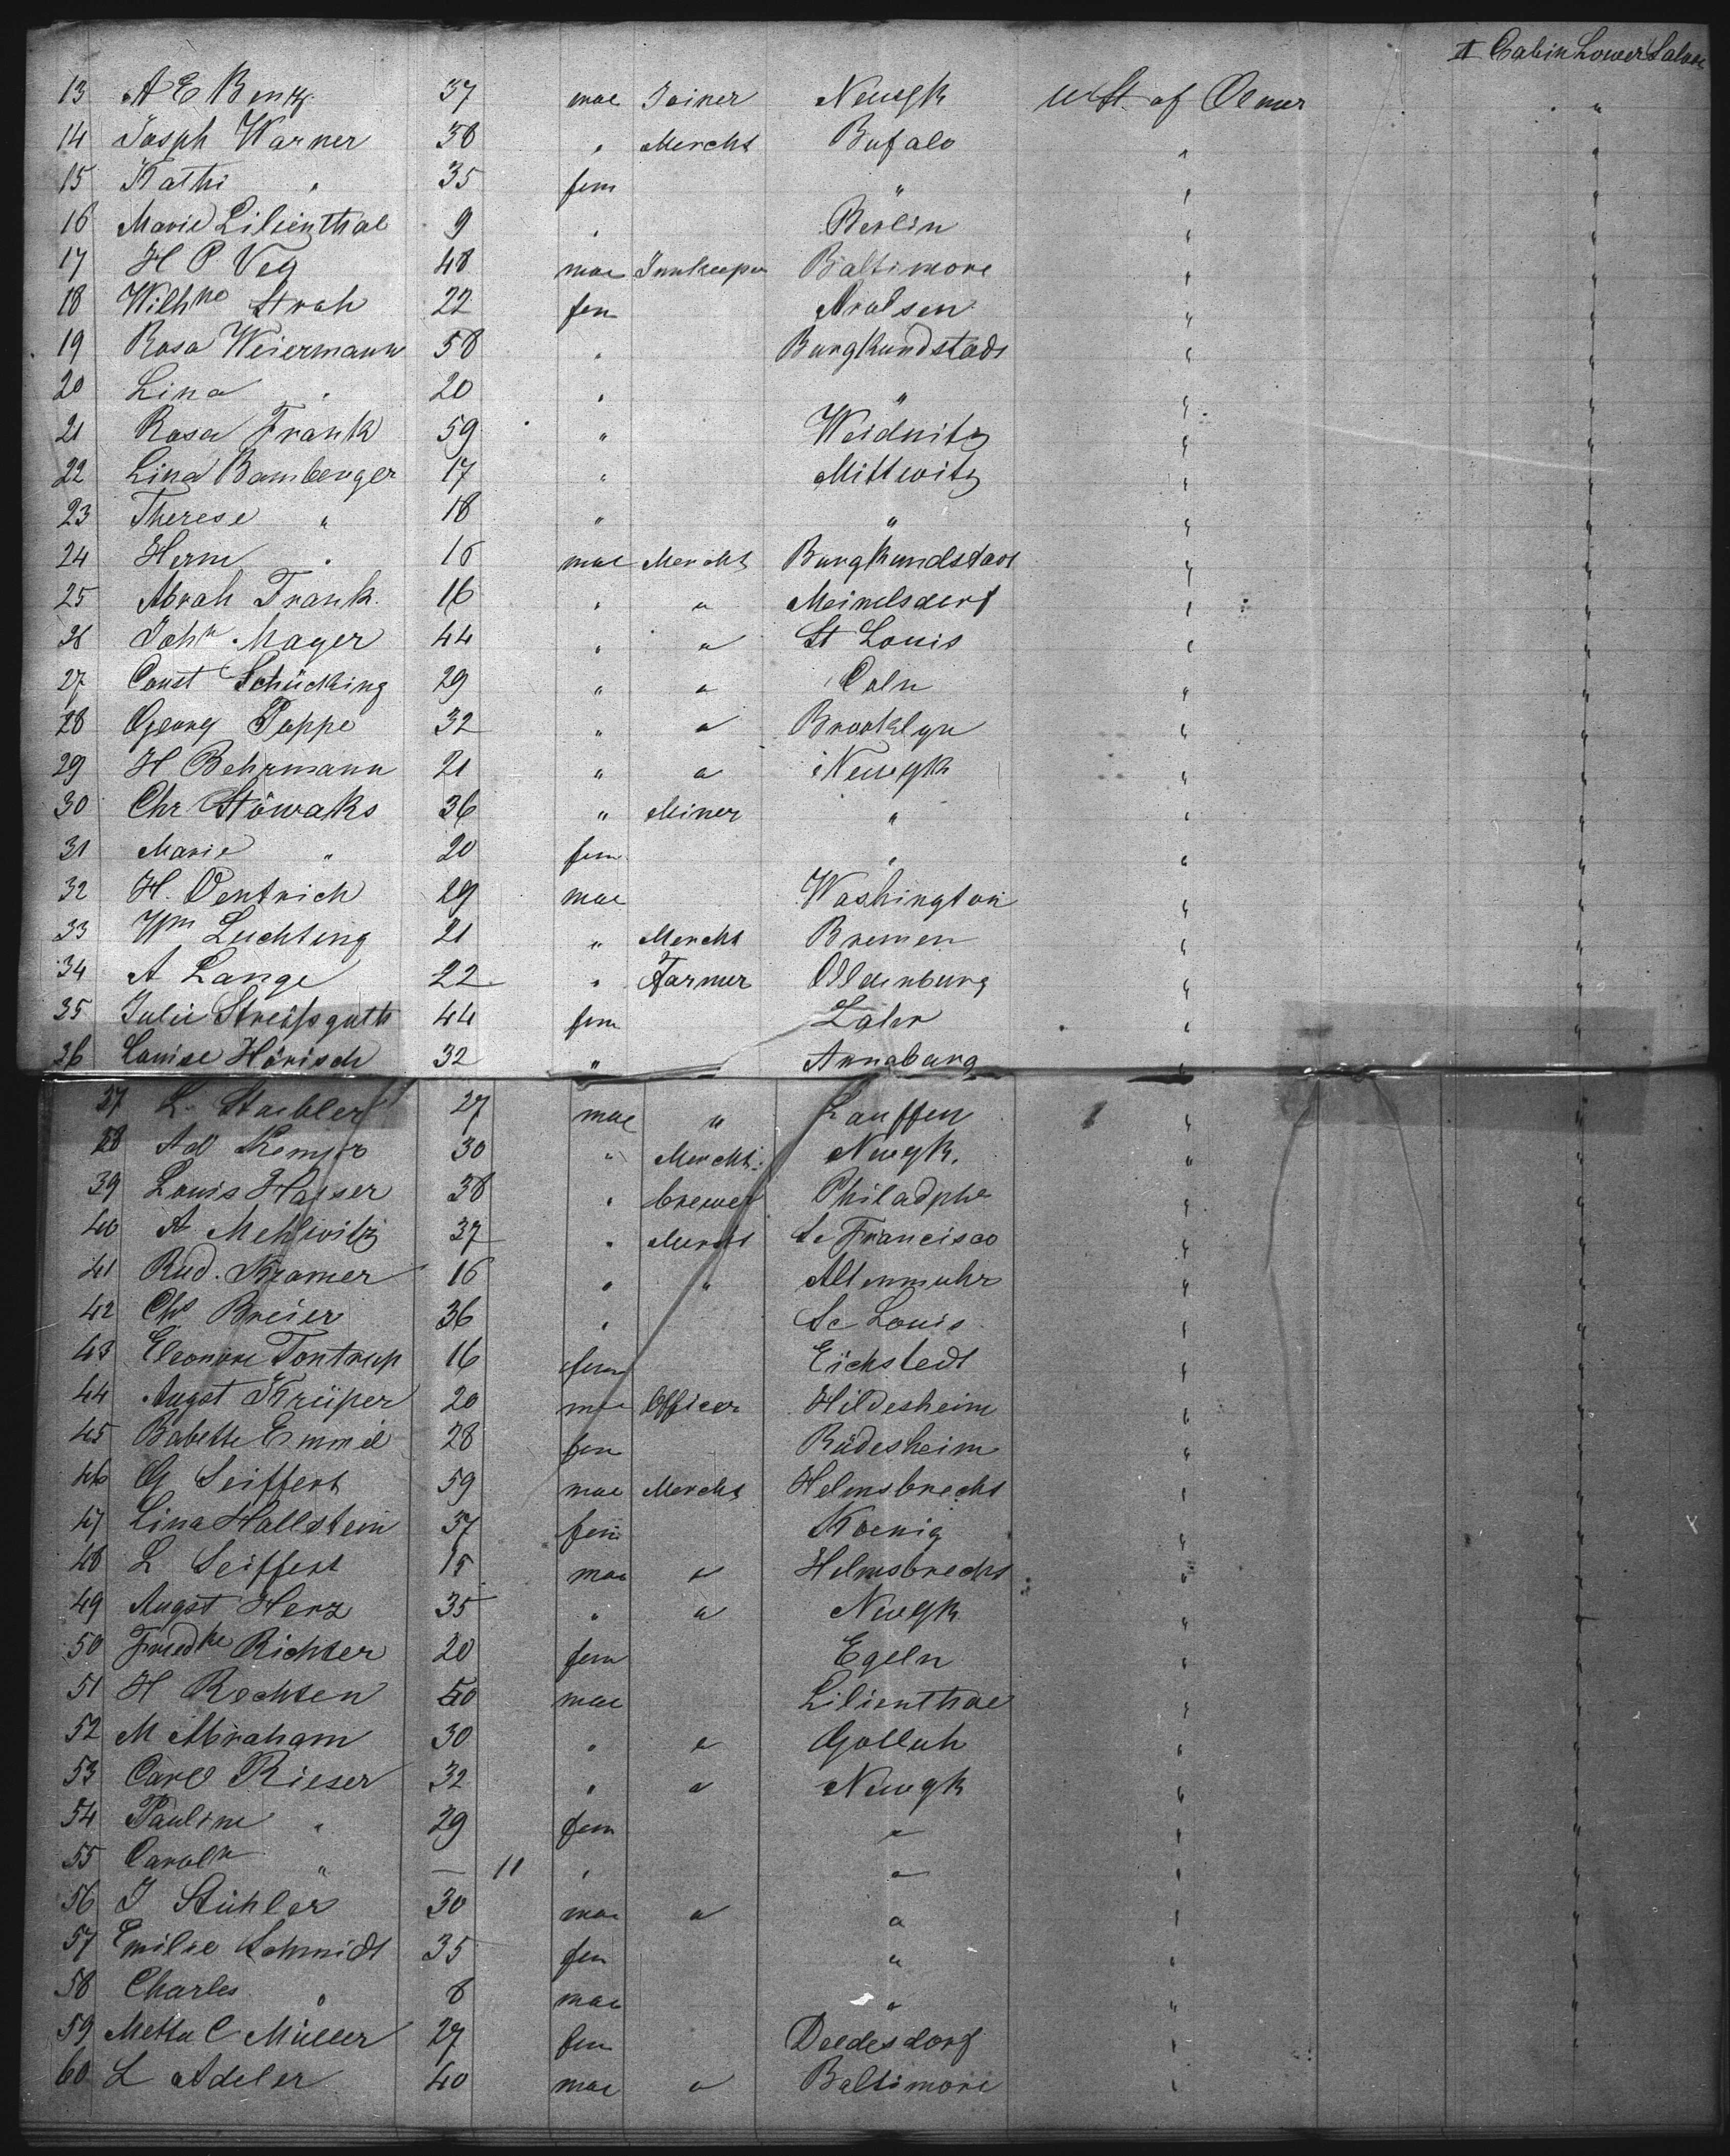 II Cabin Lower Saloon
13 A E Bentz 37 mae Joiner Newyk USt. of Amer "
14 Josph Warner 38 " Mercht Bufalo " "
15 Kathi " 35 fem " " "
16 Marie Lilienthal 9 " Berlin " "
17 H P Veg 48 mae Innkeeper Baltimore " "
18 Wilhne Strah 22 fem Arolsen " "
19 Rosa Weiermann 58 " Burgkundstadt " "
20 Lina " 20 " " " "
21 Rosa Frank 59 " Weidnitz " "
22 Lina Bamberger 17 " Mittwitz " "
23 Therese " 18 " " " "
24 Herm " 16 mae Mercht Burgkundstadt " "
25 Abrah Frank 16 " " Meinelsdorf " "
26 John Mayer 44 " " St Louis " "
27 Const Schücking 29 " " Coln " "
28 Georg Poppe 32 " " Brooklyn " "
29 H Behrmann 21 " " Newyk " "
30 Chr Stöwaks 36 " Miner " " "
31 Marie " 20 fem " " "
32 H. Oentrich 29 mae Washington " "
33 Wm Luchting 21 " Mercht Bremen " "
34 A Lange 22 " Farmer Oldenburg " "
35 Julie Streissguth 44 fem Lahr " "
36 Louise Hörisch 32 " Annaburg " "
37 L. Staebler 27 mae " Lauffen " "
38 Ad Kempe 30 " Mercht Newyk. " "
39 Louis Haiser 38 " brewer Philadpha " "
40 A Mehlwitz 37 " Mercht S. Francisco " "
41 Rud. Kramer 16 " " Altenmuhr " "
42 Chs Breier 36 " St Louis " "
43 Eleonore Tontrup 16 fem Eichstedt " "
44 Augst Krüper 20 mae Officer Hildesheim " "
45 Babette Emmel 28 fem Rüdesheim " "
46 G Seiffert 59 mae Mercht Helmsbrecht " "
47 Lina Hallstein 37 fem Koenig " "
48 L Seiffert 15 mae " Helmsbrecht " "
49 Augst Herz 35 " " Newyk " "
50 Friedke Richter 20 fem Egeln " "
51 H Rochten 50 mae Lilienthal " "
52 M Abraham 30 " " Gollub " "
53 Carl Rieser 32 " " Newyk " "
54 Pauline " 29 fem " " "
55 Caroln " — 11 " " " "
56 J Stühler 30 mae " " " "
57 Emilie Schmidt 35 fem " " "
58 Charles " 8 mae " " "
59 Metta C Müller 27 fem Dedesdorf " "
60 L Adeler 40 mae " Baltimore "